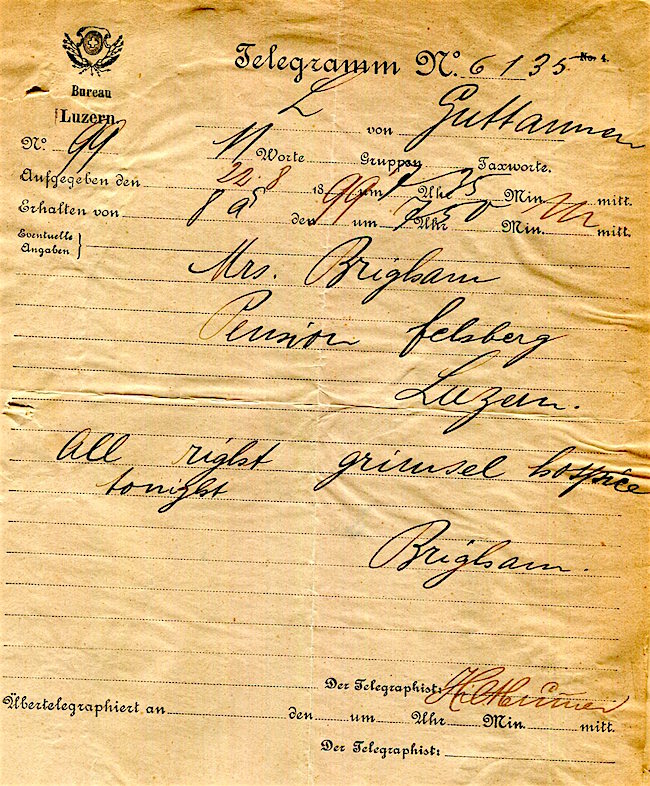 Telegramm No. 6135 No. 4.
Bureau
Luzern
L von Guttannen
No. 99 11 Worte Gruppen Taxworte.
Aufgegeben den 22.8 1899 um Uhr 35 Min. mitt.
Erhalten von den um 7 Uhr 50 Min. mitt.
Eventuelle
Angaben
Mrs. Brigham
Pension felsberg
Luzern.
All right grimsel hospice
tonight
Brigham.
Der Telegraphist:
Übertelegraphiert an den um Uhr Min. mitt.
Der Telegraphist: